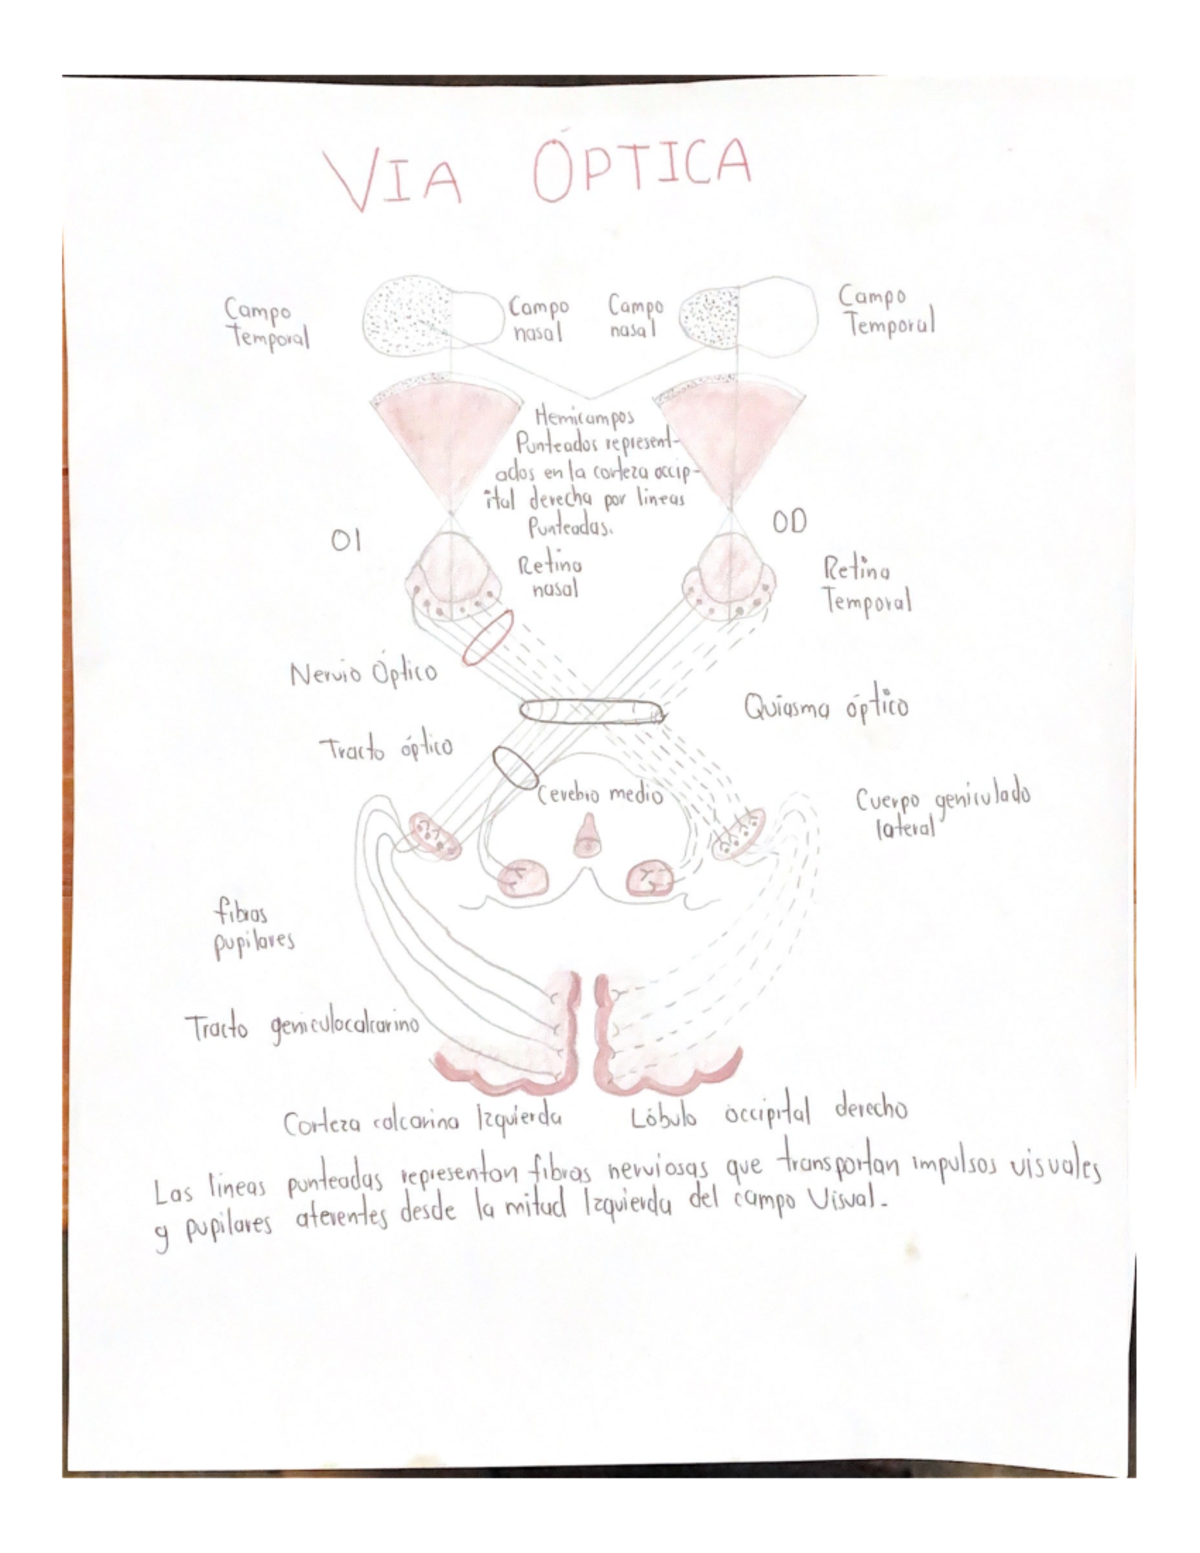 VIA ÓPTICA
Campo
Temporal
Campo
nasal
Campo
nasal
Campo
Temporal
Hemicampos
Punteados represent-
ados en la corteza occip-
ital derecha por lineas
Punteadas.
OI
OD
Retina
nasal
Retina
Temporal
Nervio Óptico
Quiasma óptico
Tracto óptico
Cerebro medio
Cuerpo geniculado
lateral
fibras
pupilares
Tracto geniculocalcarino
Corteza calcarina Izquierda
Lóbulo occipital derecho
Las lineas punteadas representan fibras nerviosas que transportan impulsos visuales
y pupilares aferentes desde la mitad Izquierda del campo Visual.